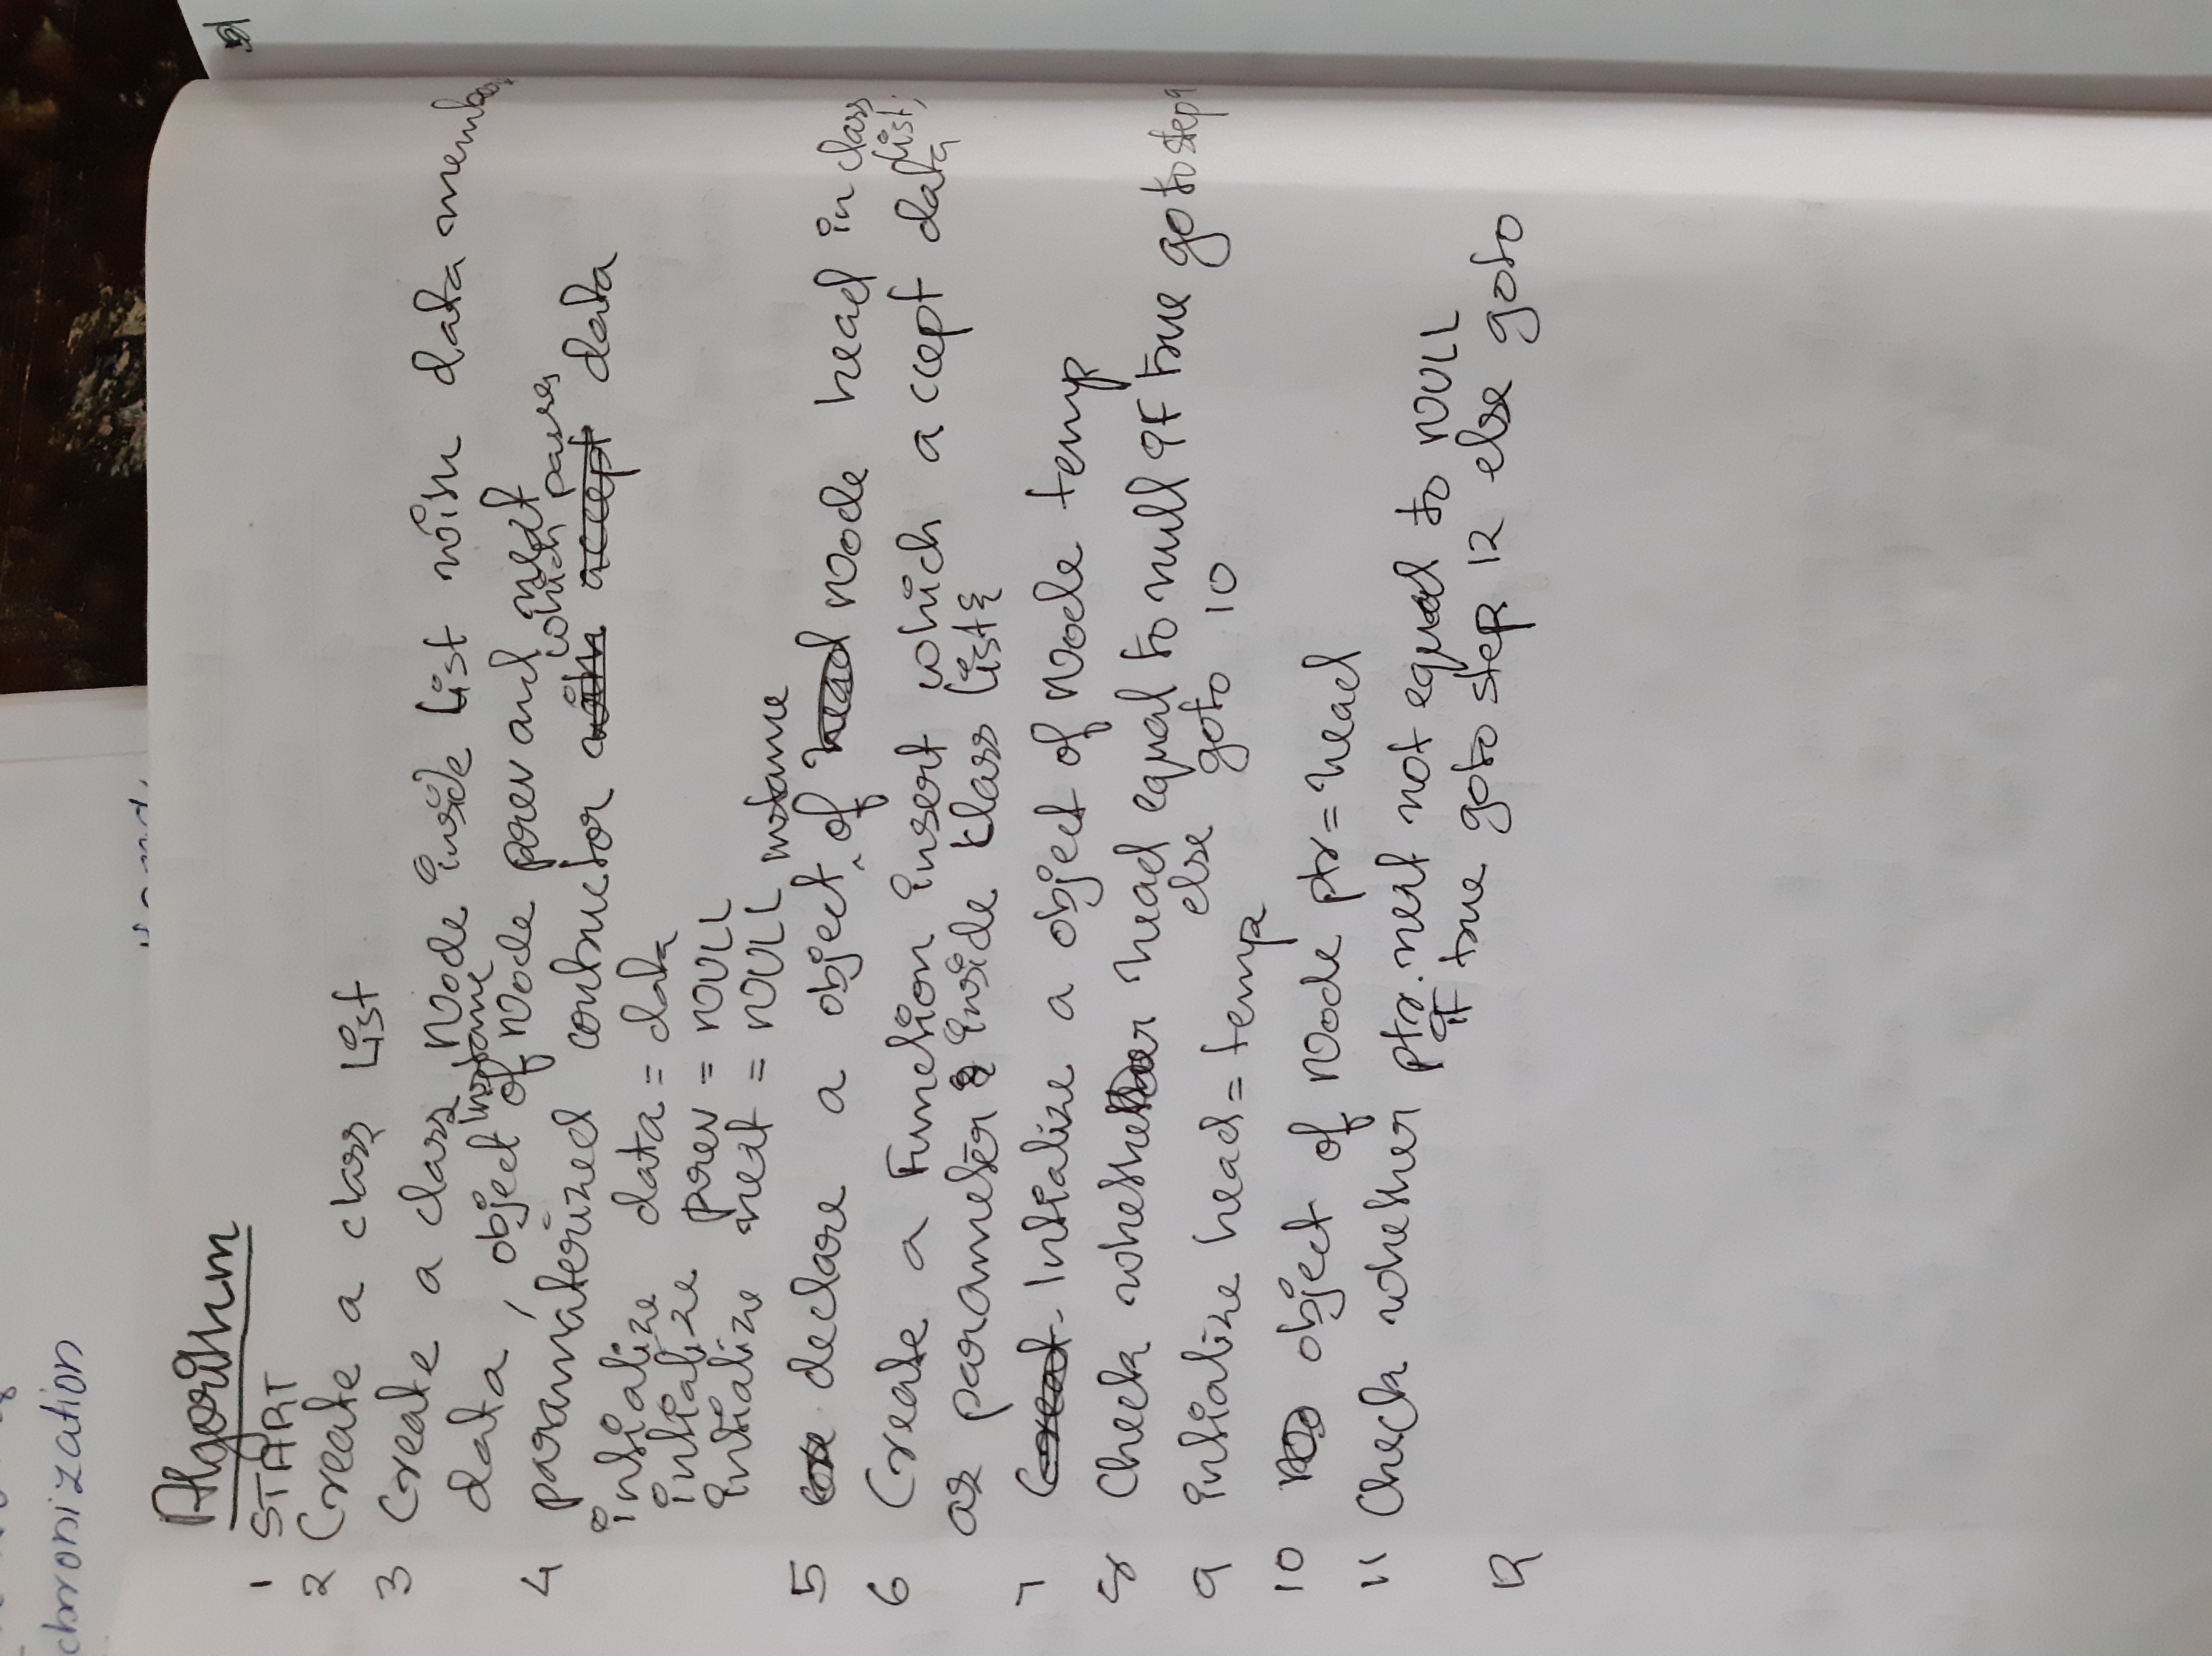 chronization
Algorithm
1 START
2 Create a class List
3 Create a class Node inside List with data members
instance
data, object of Node prev and next
which passes
4 paramaterized contructor with accept data
intialize data = data
intialize prev = NULL
intialize next = NULL
instance
5 declare a object of head Node head in class
List;
6 Create a Function insert which accept data
as parameter inside class List{
7 Creat Intialize a object of Node temp
8 Check whether head equal to null if true go to step 9
else goto 10
9 intialize head = temp
10 object of Node ptr = head
11 Check whether ptr.next not equal to NULL
if true goto step 12 else goto
12